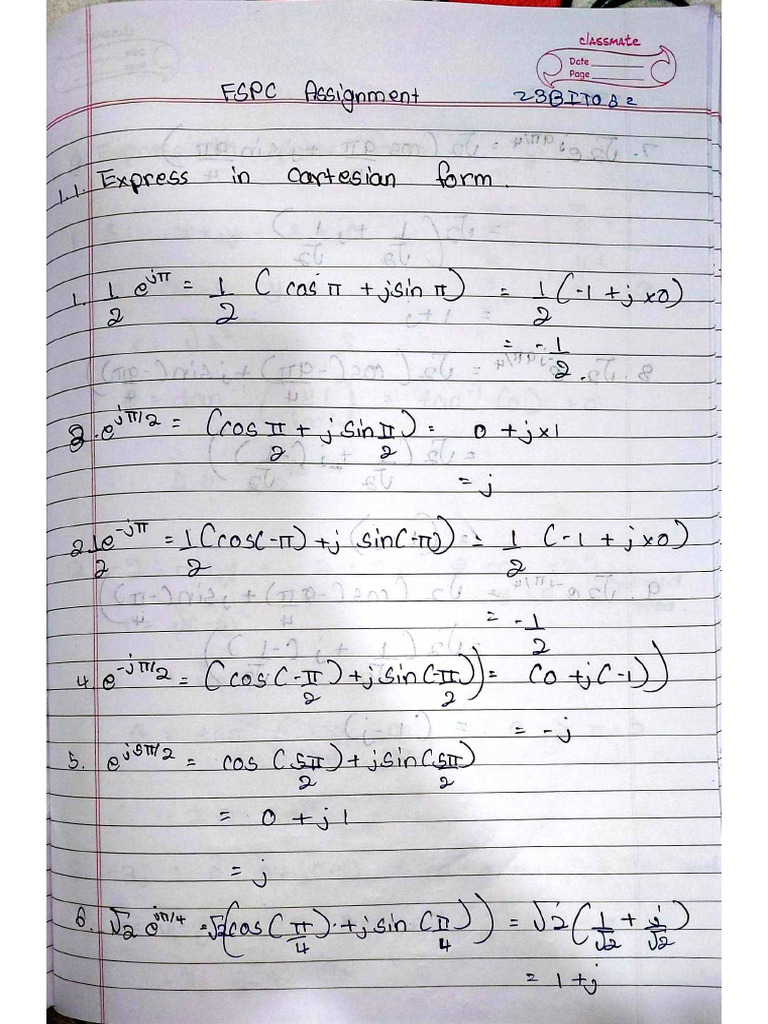 classmate
Date
Page
FSPC Assignment 23BIT082
1.1. Express in cartesian form.
1. 1/2 e^jπ = 1/2 (cos π + j sin π) = 1/2 (-1 + j x0)
= -1/2.
3. e^jπ/2 = (cos π/2 + j sin π/2) = 0 + j x 1
= j
2. 1/2 e^-jπ = 1/2 (cos(-π) + j sin(-π)) = 1/2 (-1 + j x0)
= -1/2
4. e^-jπ/2 = (cos(-π/2) + j sin(-π/2)) = (0 + j(-1))
= -j
5. e^j5π/2 = cos(5π/2) + j sin(5π/2)
= 0 + j1
= j
6. √2 e^jπ/4 = √2 (cos(π/4) + j sin(π/4)) = √2 (1/√2 + j/√2)
= 1 + j